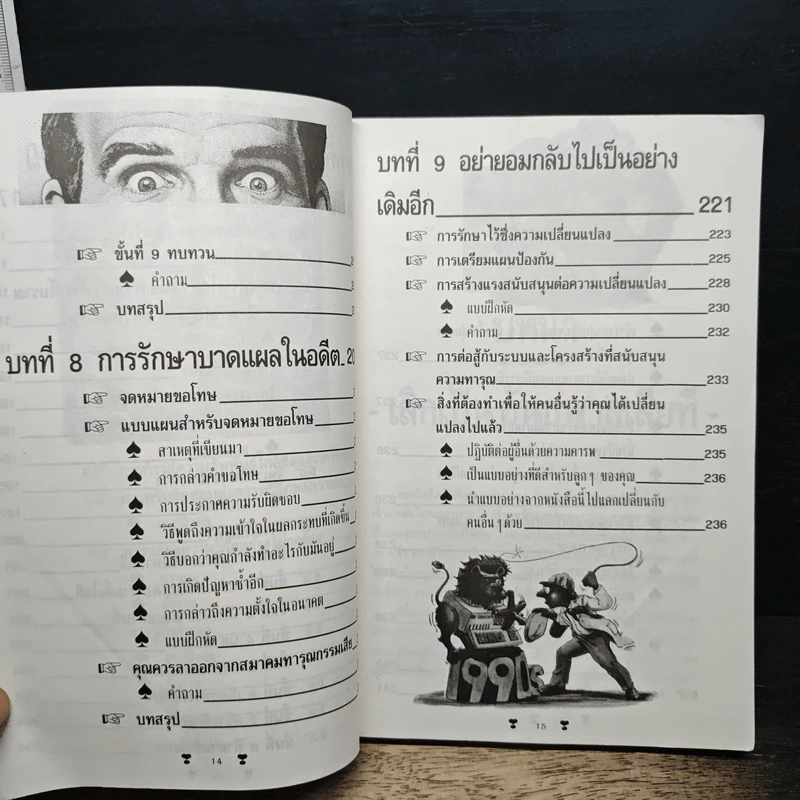 ขั้นที่ 9 ทบทวน
คำถาม
บทสรุป
บทที่ 8 การรักษาบาดแผลในอดีต
จดหมายขอโทษ
แบบแผนสำหรับจดหมายขอโทษ
สาเหตุที่เขียนมา
การกล่าวคำขอโทษ
การประกาศความรับผิดชอบ
วิธีพูดถึงความเข้าใจในผลกระทบที่เกิดขึ้น
วิธีบอกว่าคุณกำลังทำอะไรกับมันอยู่
การเกิดปัญหาซ้ำอีก
การกล่าวถึงความตั้งใจในอนาคต
แบบฝึกหัด
คุณควรลาออกจากสมาคมทารุณกรรมเสีย
คำถาม
บทสรุป
14
บทที่ 9 อย่ายอมกลับไปเป็นอย่าง
เดิมอีก 221
การรักษาไว้ซึ่งความเปลี่ยนแปลง 223
การเตรียมแผนป้องกัน 225
การสร้างแรงสนับสนุนต่อความเปลี่ยนแปลง 228
แบบฝึกหัด 230
คำถาม 232
การต่อสู้กับระบบและโครงสร้างที่สนับสนุน
ความทารุณ 233
สิ่งที่ต้องทำเพื่อให้คนอื่นรู้ว่าคุณได้เปลี่ยน
แปลงไปแล้ว 235
ปฏิบัติต่อผู้อื่นด้วยความคารพ 235
เป็นแบบอย่างที่ดีสำหรับลูกๆ ของคุณ 236
นำแบบอย่างจากหนังสือนี้ไปแลกเปลี่ยนกับ
คนอื่นๆด้วย 236
1990s
15